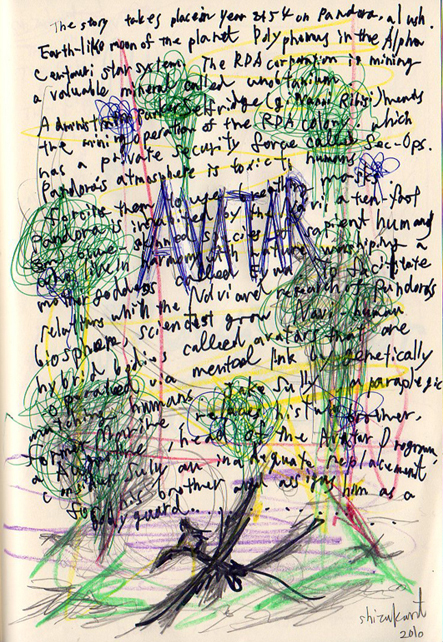 The story takes place in year 2154 on Pandora, a lush.
Earth-like moon of the planet Polyphemus in the Alpha
Centauri star system. The RDA corporation is mining
a valuable mineral called unobtanium.
Parker Selfridge (Giovanni Ribisi)
the mining operation of the RDA colony, which
has a private security force called Sec-Ops.
Pandora's atmosphere is toxic to humans
forcing them to use breathing masks
Pandora is inhabited by the Na'vi a ten-foot
blue-skinned species of sapient humanoids
who live in harmony with nature worshiping a
mother goddess called Eywa To facilitate
relations with the Na'vi and research of Pandora's
biosphere, scientist grow Navi-human
hybrid bodies called avatars that are
operated via mental link by genetically
matching humans Jake Sully, a paraplegic
former marine replaces his twin brother.
head of the Avatar Program,
considers Sully an inadequate replacement
for his brother and assigns him as a
bodyguard...
AVATAR
shizukant
2010